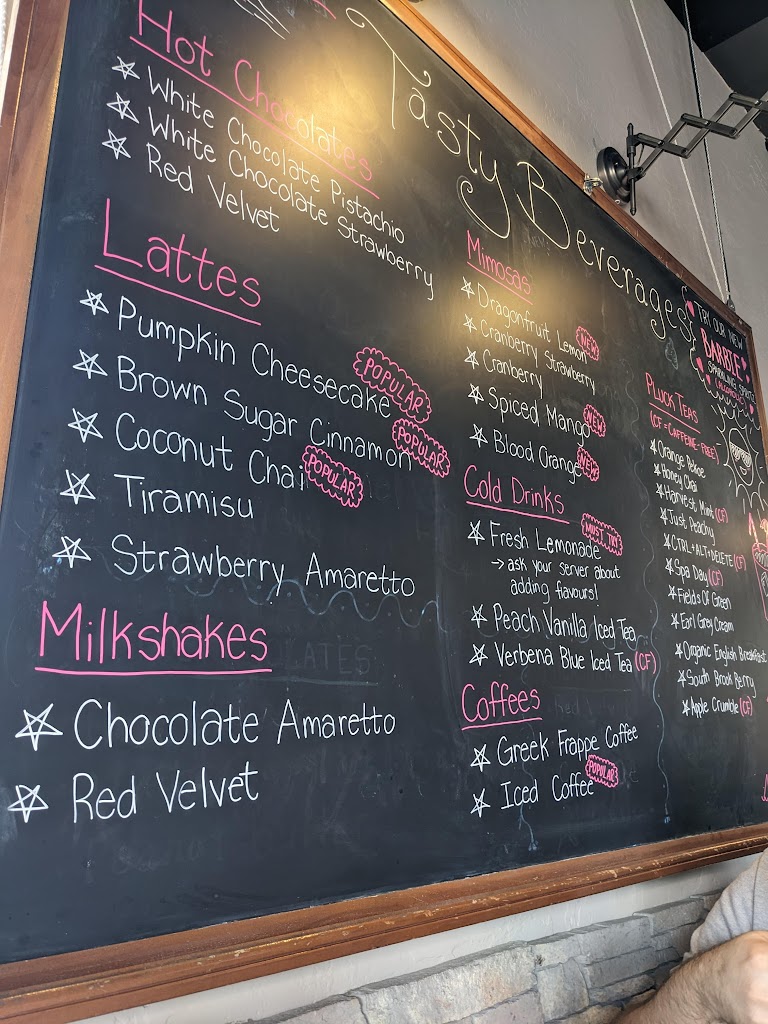 Tasty Beverages
Hot Chocolates
White Chocolate Pistachio
White Chocolate Strawberry
Red Velvet
Lattes
Pumpkin Cheesecake POPULAR
Brown Sugar Cinnamon POPULAR
Coconut Chai POPULAR
Tiramisu
Strawberry Amaretto
Milkshakes
Chocolate Amaretto
Red Velvet
Mimosas
Dragonfruit Lemon NEW
Cranberry Strawberry
Cranberry
Spiced Mango NEW
Blood Orange NEW
Cold Drinks
Fresh Lemonade MUST TRY
→ ask your server about
adding flavours!
Peach Vanilla Iced Tea
Verbena Blue Iced Tea (CF)
Coffees
Greek Frappe Coffee
Iced Coffee POPULAR
TRY OUR NEW
BARBIE
SPARKLING
Pluck Teas
(CF = CAFFEINE-FREE)
Orange Pekoe
Honey Chai
Harvest Mint (CF)
Just Peachy
CTRL+ALT+DELETE (CF)
Spa Day (CF)
Fields Of Green
Earl Grey Cream
Organic English Breakfast
South Brook Berry
Apple Crumble (CF)